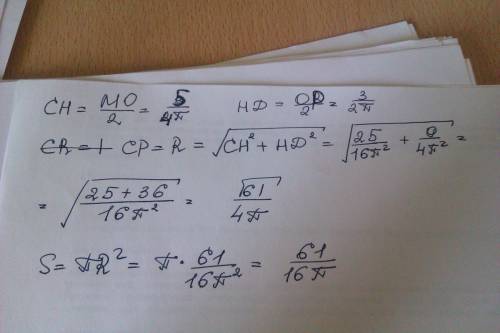 CH = MO/2 = 5/4π HD = OP/2 = 3/2π
CP = R = √(CH² + HD²) = √(25/16π² + 9/4π²) =
= √((25+36)/16π²) = √61/4π
S = πR² = π · 61/16π² = 61/16π